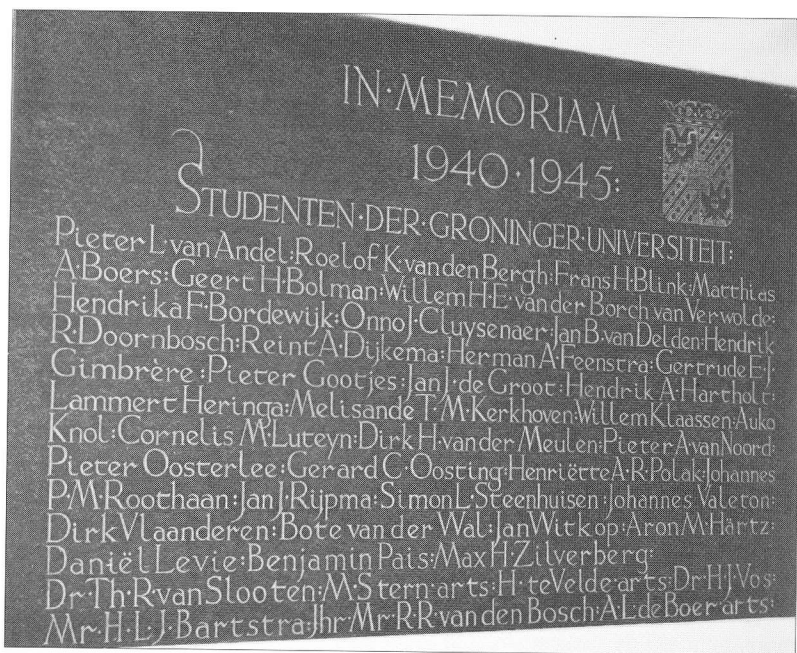 IN·MEMORIAM
1940·1945:
STUDENTEN·DER·GRONINGER·UNIVERSITEIT:
Pieter L·van Andel:Roelof K·van den Bergh:Frans H·Blink:Matthias
A·Boers:Geert H·Bolman:Willem H·E·van der Borch van Verwolde:
Hendrika F·Bordewijk:Onno J·Cluysenaer:Jan B·van Delden:Hendrik
R·Doornbosch:Reint A·Dijkema:Herman A·Feenstra:Gertrude E·J·
Gimbrère:Pieter Gootjes:Jan J·de Groot:Hendrik A·Hartholt:
Lammert Heringa:Melisande T·M·Kerkhoven:Willem Klaassen:Auko
Knol:Cornelis M·Luteyn:Dirk H·van der Meulen:Pieter A·van Noord:
Pieter Oosterlee:Gerard C·Oosting:Henriëtte A·R·Polak:Johannes
P·M·Roothaan:Jan J·Rijpma:Simon L·Steenhuisen:Johannes Valeton:
Dirk Vlaanderen:Bote van der Wal:Jan Witkop:Aron M·Härtz:
Daniël Levie:Benjamin Pais:Max H·Zilverberg:
Dr·Th·R·van Slooten:M·Stern·arts:H·te Velde·arts:Dr·H·J·Vos:
Mr·H·L·J·Bartstra:Jhr·Mr·R·R·van den Bosch:A·L·de Boer·arts: